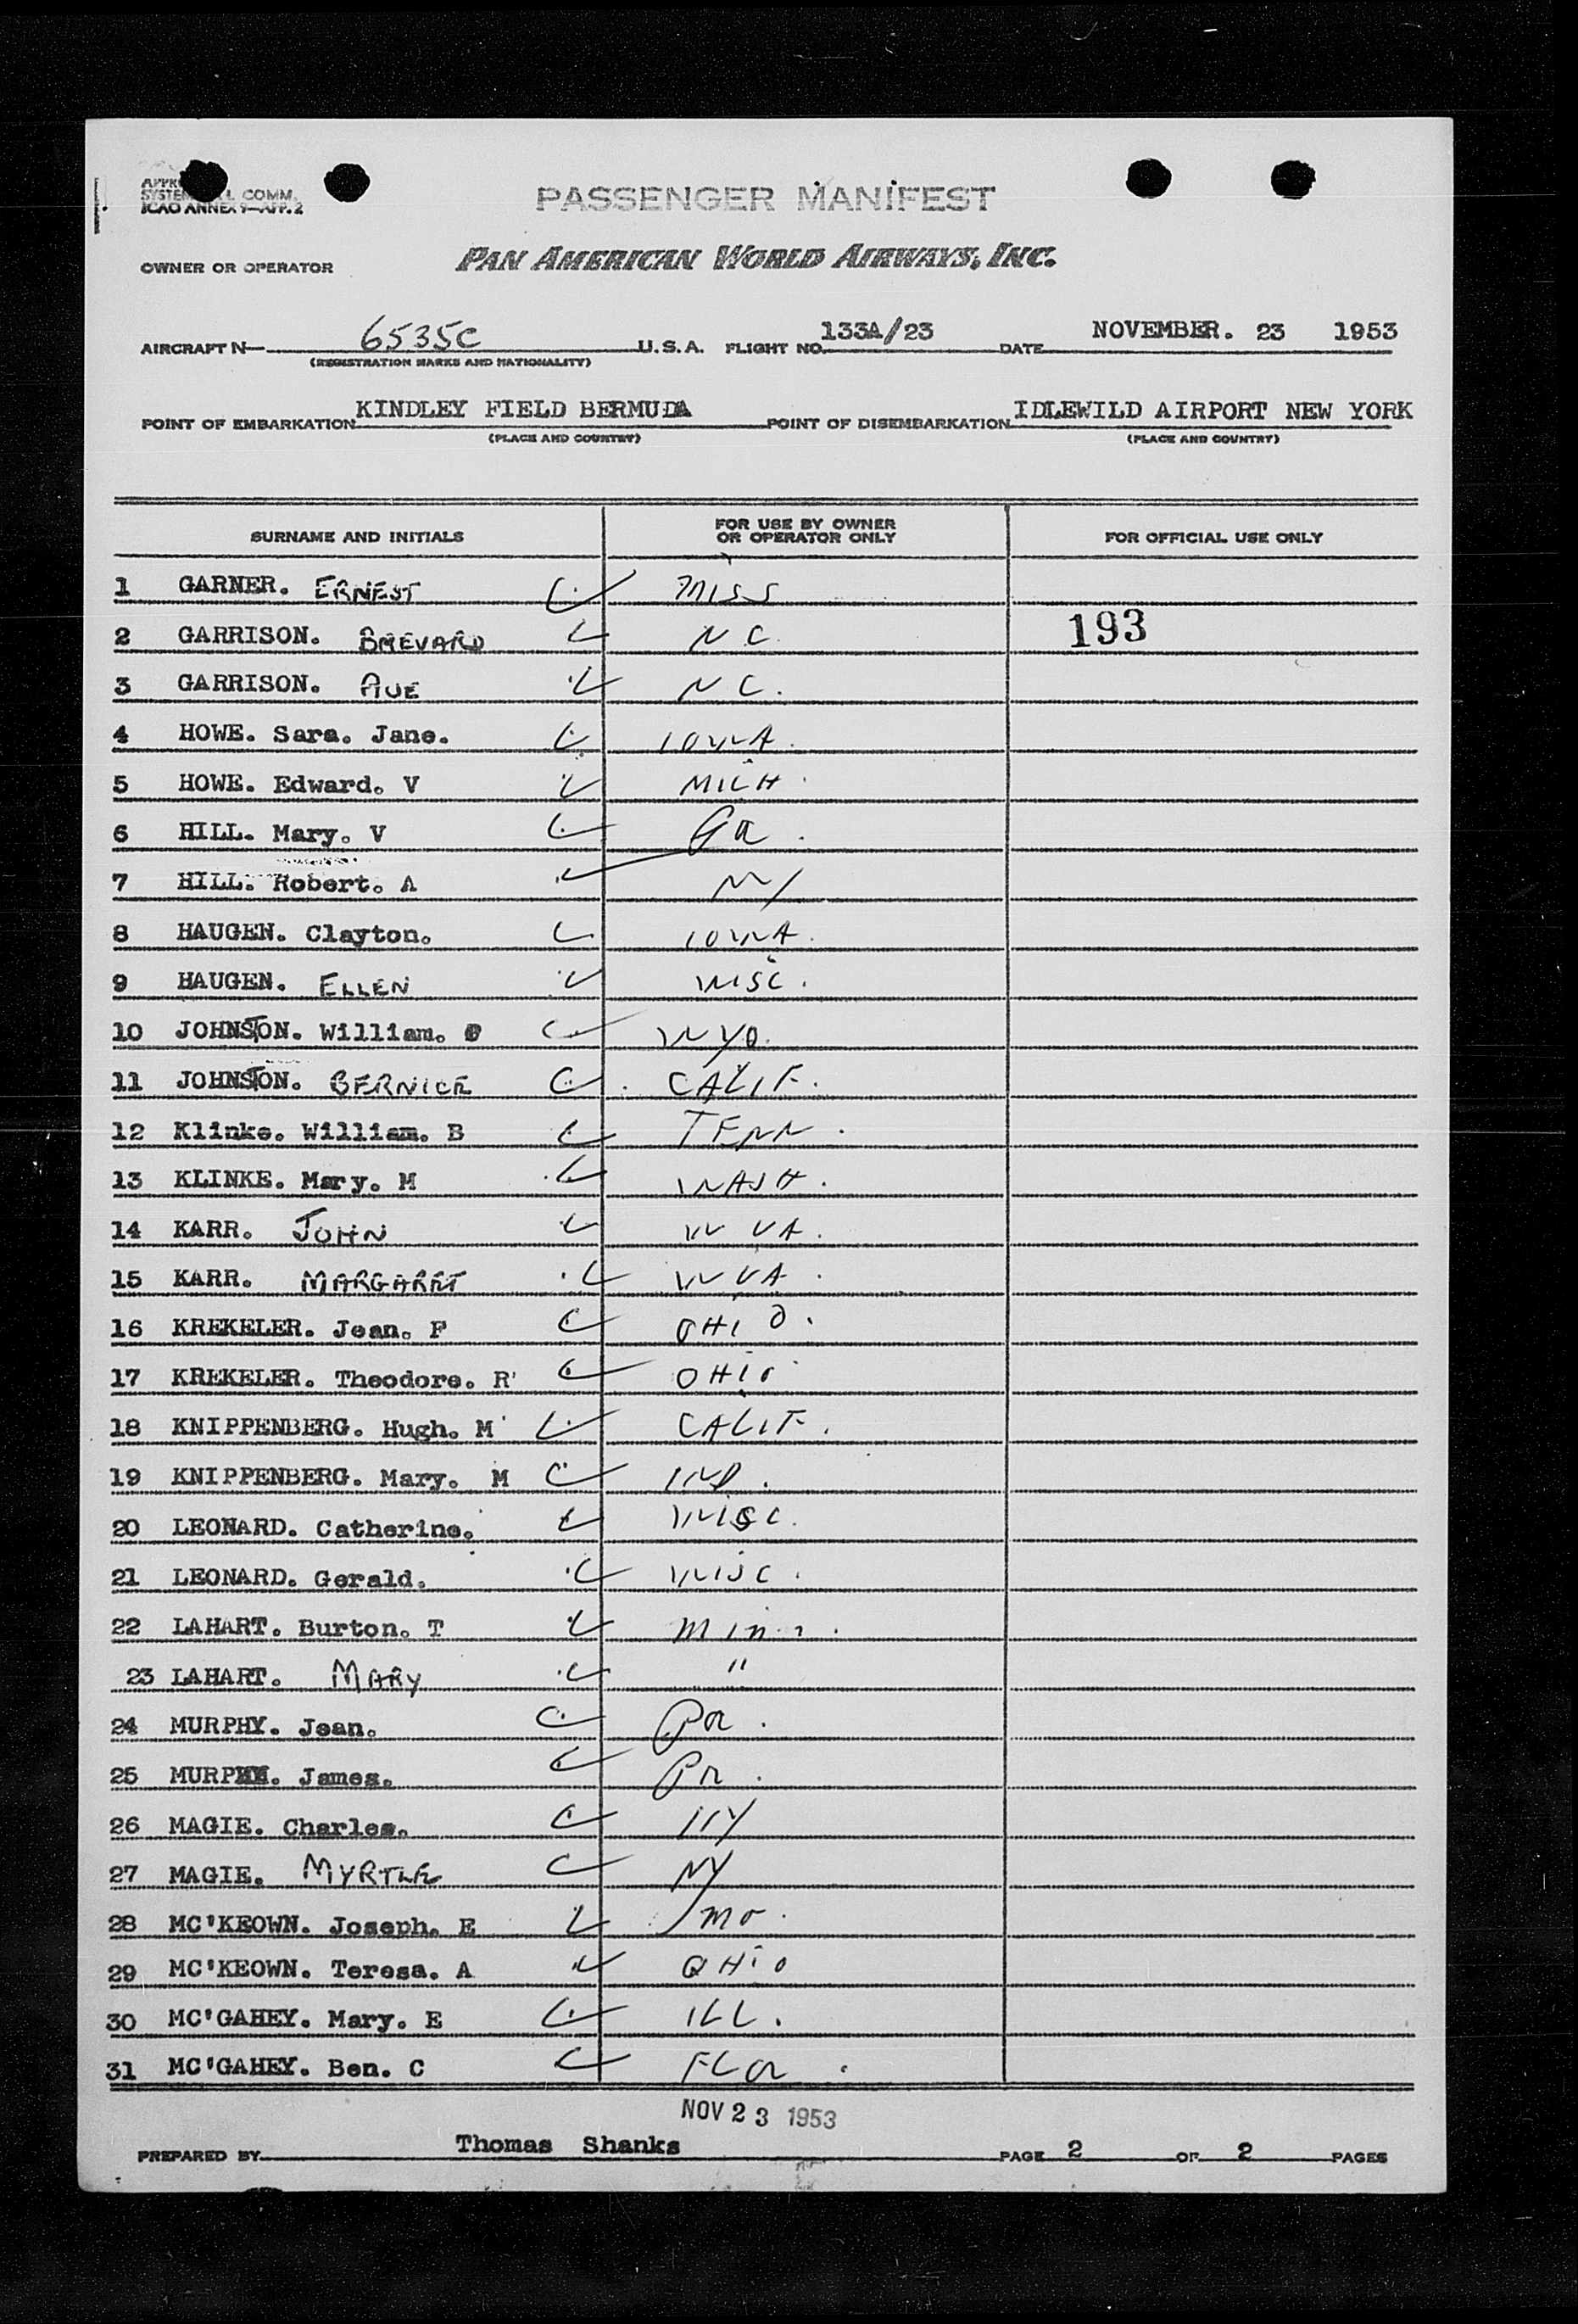 SYSTEM COMM.
ICAO ANNEX 9—APP. 2
PASSENGER MANIFEST
OWNER OR OPERATOR PAN AMERICAN WORLD AIRWAYS, INC.
AIRCRAFT N— 6535C U.S.A. FLIGHT NO. 133A/23 DATE NOVEMBER. 23 1953
(REGISTRATION MARKS AND NATIONALITY)
POINT OF EMBARKATION KINDLEY FIELD BERMUDA POINT OF DISEMBARKATION IDLEWILD AIRPORT NEW YORK
(PLACE AND COUNTRY) (PLACE AND COUNTRY)
SURNAME AND INITIALS FOR USE BY OWNER OR OPERATOR ONLY FOR OFFICIAL USE ONLY
1 GARNER. ERNEST MISS
2 GARRISON. BREVARD N C. 193
3 GARRISON. AUE N C.
4 HOWE. Sara. Jane. IOWA.
5 HOWE. Edward. V MICH.
6 HILL. Mary. V Ga.
7 HILL. Robert. A NY
8 HAUGEN. Clayton. IOWA.
9 HAUGEN. ELLEN WISC.
10 JOHNSTON. William. WYO.
11 JOHNSTON. BERNICE CALIF.
12 Klinke. William. B TENN.
13 KLINKE. Mary. M WASH.
14 KARR. JOHN W VA.
15 KARR. MARGARET W VA.
16 KREKELER. Jean. F OHIO.
17 KREKELER. Theodore. R OHIO
18 KNIPPENBERG. Hugh. M CALIF.
19 KNIPPENBERG. Mary. M IND.
20 LEONARD. Catherine. WISC.
21 LEONARD. Gerald. WISC.
22 LAHART. Burton. T Minn.
23 LAHART. MARY "
24 MURPHY. Jean. Pa.
25 MURPHY. James. Pa.
26 MAGIE. Charles. NY
27 MAGIE. MYRTLE NY
28 MC'KEOWN. Joseph. E Mo.
29 MC'KEOWN. Teresa. A OHIO
30 MC'GAHEY. Mary. E ILL.
31 MC'GAHEY. Ben. C FLA.
NOV 23 1953
PREPARED BY Thomas Shanks PAGE 2 OF 2 PAGES